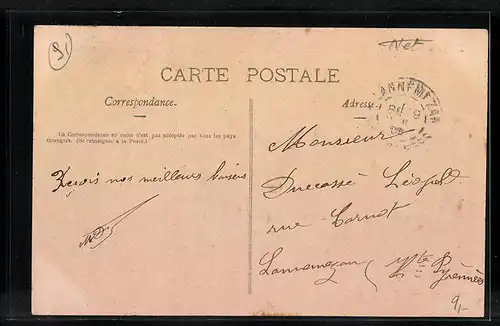 Net
CARTE POSTALE
Correspondance.
La Correspondance au recto n'est pas acceptée par tous les pays
étrangers. (Se renseigner à la Poste).
Reçois nos meilleurs baisers
Adresse
LANNEMEZAN
Monsieur
Ducassé Léopold
rue Carnot
Lannemezan (Htes Pyrénées
9,-